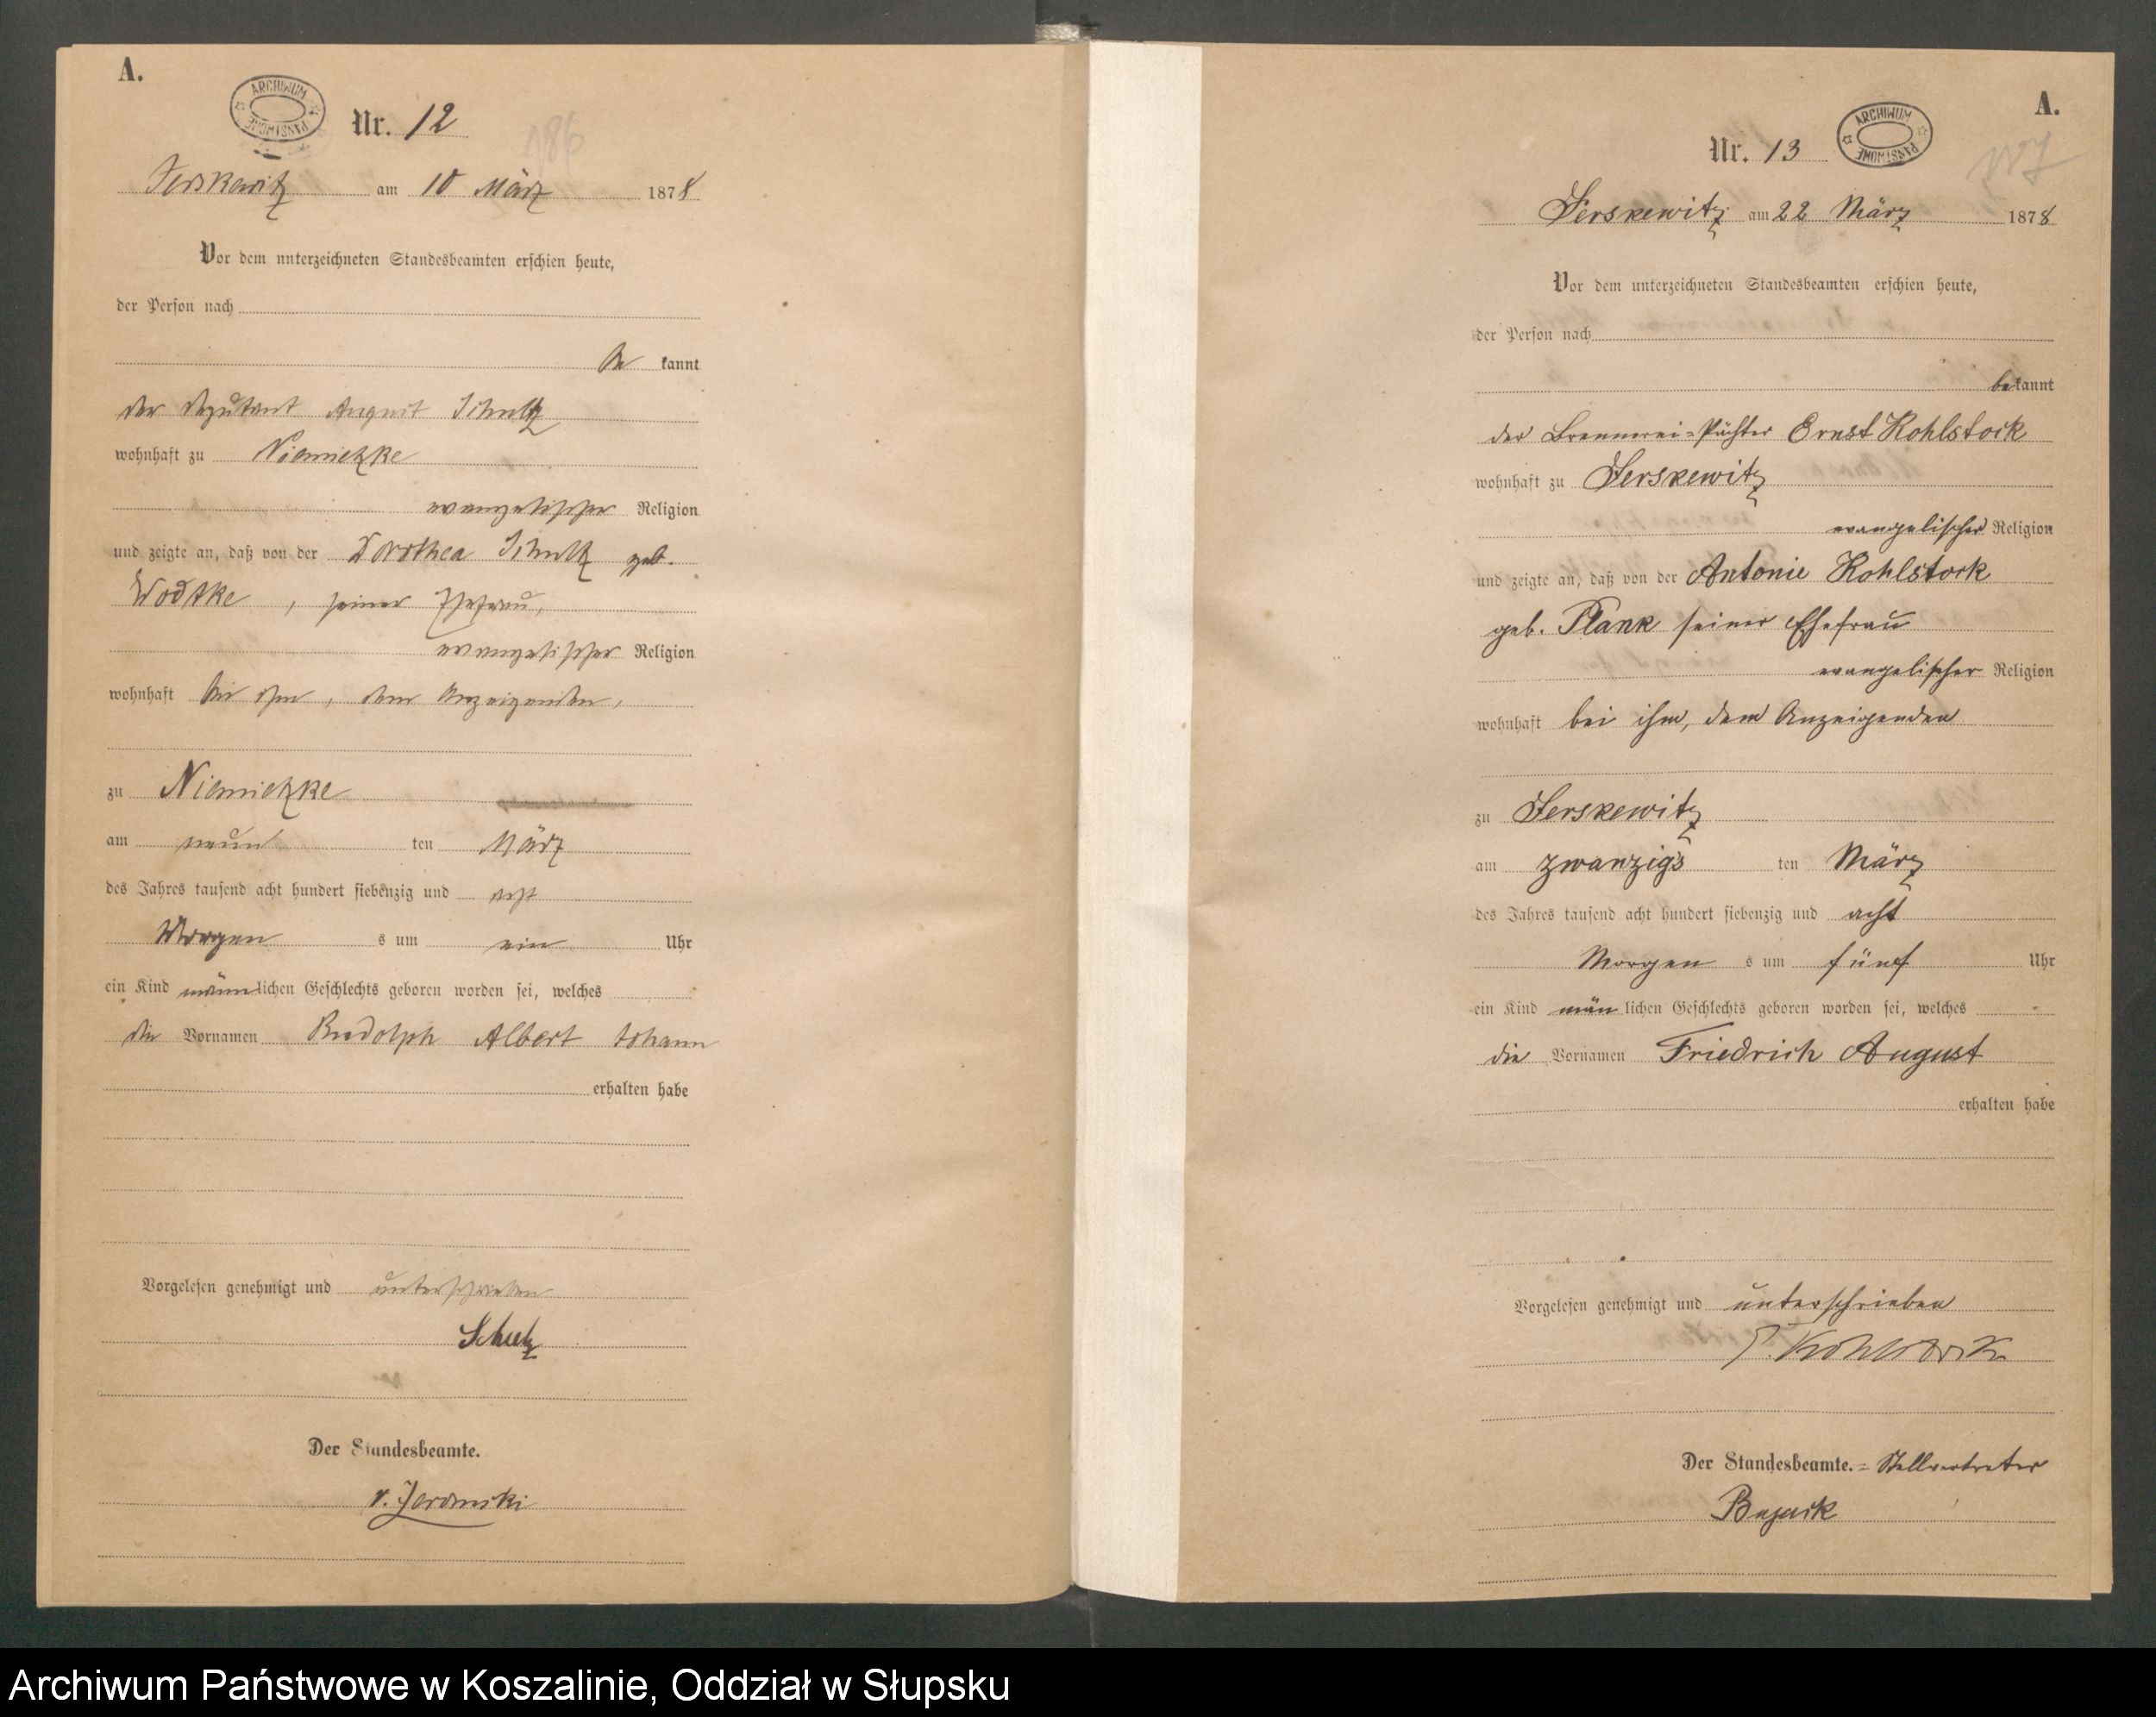 A.
ARCHIWUM PAŃSTWOWE
Nr. 12
186
Jerskewitz am 10 März 1878
Vor dem unterzeichneten Standesbeamten erschien heute,
der Person nach
be kannt
der Deputant August Schultz
wohnhaft zu Niemietzke
evangelischer Religion
und zeigte an, daß von der Dorothea Schultz geb.
Wodtke, seiner Ehefrau,
evangelischer Religion
wohnhaft bei ihm, dem Anzeigenden,
zu Niemietzke
am neun ten März
des Jahres tausend acht hundert siebenzig und acht
Morgen s um ein Uhr
ein Kind männlichen Geschlechts geboren worden sei, welches
die Vornamen Rudolph Albert Johann
erhalten habe
Vorgelesen genehmigt und unterschrieben
Schultz
Der Standesbeamte.
A.
Nr. 13
ARCHIWUM PAŃSTWOWE
Jerskewitz am 22 März 1878
Vor dem unterzeichneten Standesbeamten erschien heute,
der Person nach
bekannt
der Brennerei=Pächter Ernst Kohlstock
wohnhaft zu Jerskewitz
evangelischer Religion
und zeigte an, daß von der Antonie Kohlstock
geb. Plank seiner Ehefrau
evangelischer Religion
wohnhaft bei ihm, dem Anzeigenden
zu Jerskewitz
am zwanzigs ten März
des Jahres tausend acht hundert siebenzig und acht
Morgen s um fünf Uhr
ein Kind män lichen Geschlechts geboren worden sei, welches
die Vornamen Friedrich August
erhalten habe
Vorgelesen genehmigt und unterschrieben
E. Kohlstock
Der Standesbeamte.= Stellvertreter
Archiwum Państwowe w Koszalinie, Oddział w Słupsku